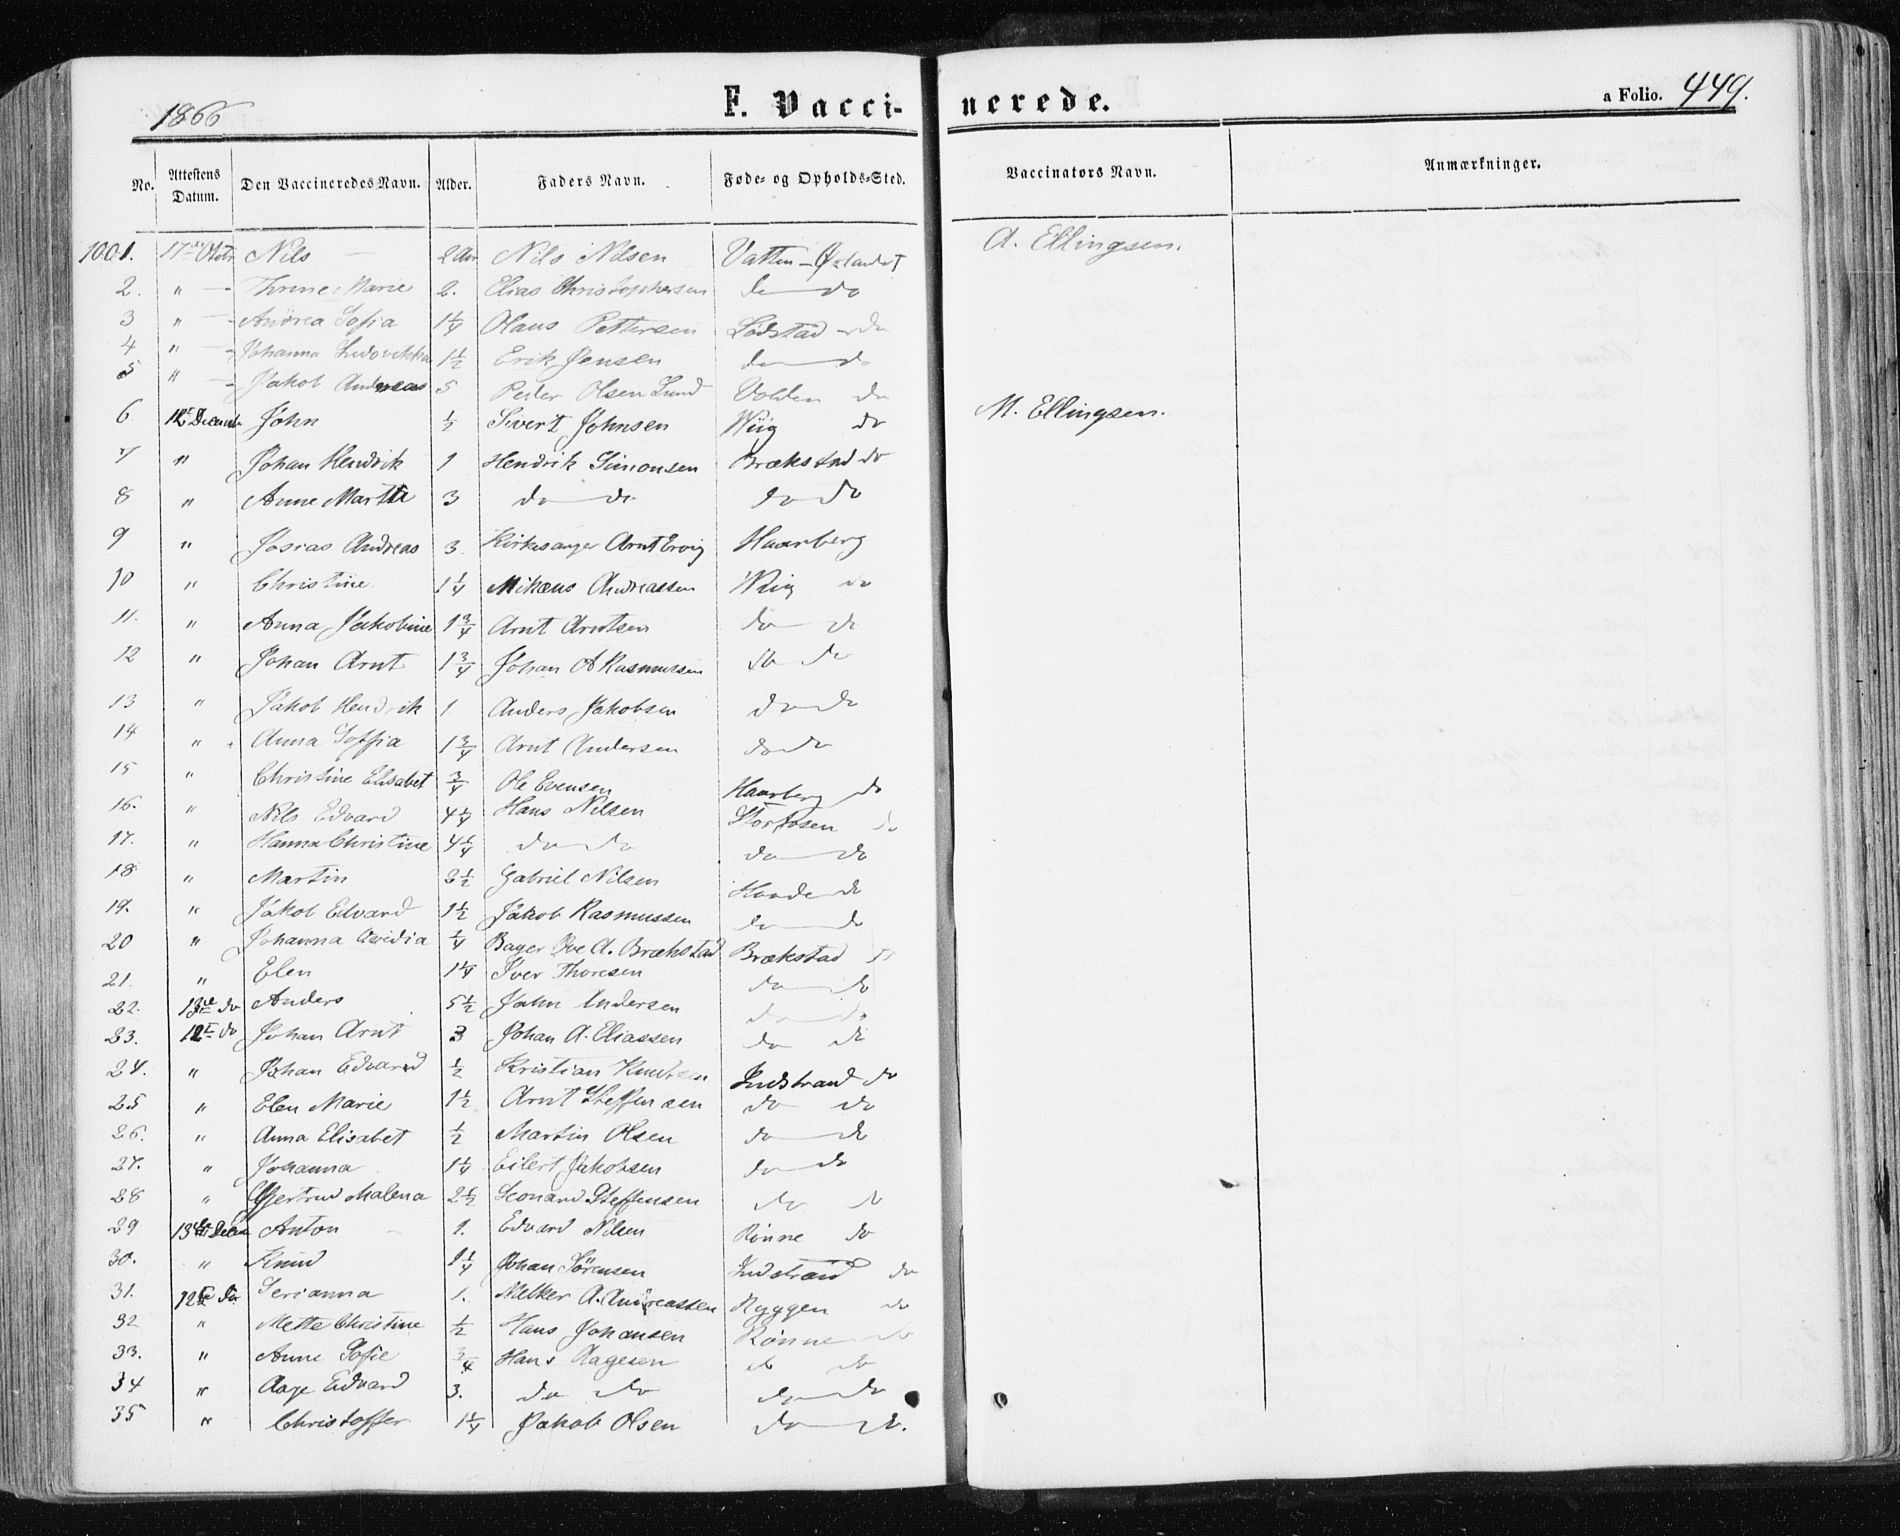 1866
F. Vacci-
nerede.
a Folio. 449.
No. Attestens Datum. Den Vaccineredes Navn. Alder. Faders Navn. Føde- og Opholds-Sted. Vaccinators Navn. Anmærkninger.
1001. Nils 2 Nils Nilsen A. Ellingsen.
2. " Marie 2. Elias Christophersen do do
3 " Andrea Sofia 1 1/4 Olaus Pettersen do
4 " Johanna 1 1/2 Erik Jensen do do
5 " Jakob Andreas 5 Peder Olsen Lund Volden do
6 John 1/2 Sivert Johnsen Wiig do M. Ellingsen.
7 " Johan Hendrik 1 Hendrik Simonsen Brækstad do
8 " Anne Marta 3 do do do do
9 " Josias Andreas 3. Kirkesanger Arnt Haarberg
10 " Christine 1 1/4 Mikæus Andreassen Wiig do
11. " Anna Jakobine 1 3/4 Arnt Arntsen do do
12 " Johan Arnt 1 3/4 Johan A Rasmussen do do
13 " Jakob Hendrik 1. Anders Jakobsen do do
14 " Anna Soffia 1 3/4 Arnt Andersen do do
15 " Christine Elisabet 3/4 Ole Evensen Haarberg do
16. " Nils Edvard 4 1/4 Hans Nilsen Storfosen do
17. " Hanna Christine 4 1/4 do do do do
18 " Martin 2 1/2 Gabriel Nilsen do
19. " Jakob Edvard 1 1/2 Jakob Rasmussen do do
20 " Johanna 1/4 A. Brækstad Brækstad do
21. " Elen 1 1/4 Iver Thoresen do do
22. 13de do Anders 5 1/2 John Andersen do do
23. 12te do Johan Arnt 3 Johan A. Eliassen do do
24. " Johan Edvard 1/2 Kristian Knutsen Indstrand do
25 " Elen Marie 1 1/2 Arnt Steffensen do do
26. " Anna Elisabet 1/2 Martin Olsen do do
27. " Johanna 1 1/4 Eilert Jakobsen do do
28 " Gjertrud Malena 2 1/2 Leonard Steffensen do do
29 Anton 1. Edvard Nilsen Rønne do
30. " Knud 1 1/4 Johan Sørensen Indstrand do
31. 12te do Serianna 1. Melker A. Andreassen Ryggen do
32 " Mette Christine 1/2 Hans Johansen Rønne do
33. " Anne Sofie 3/4 Hans Aagesen do do
34 " Aage Edvard 3. do do do do
35 " Christoffer 1 1/4 Jakob Olsen do do.